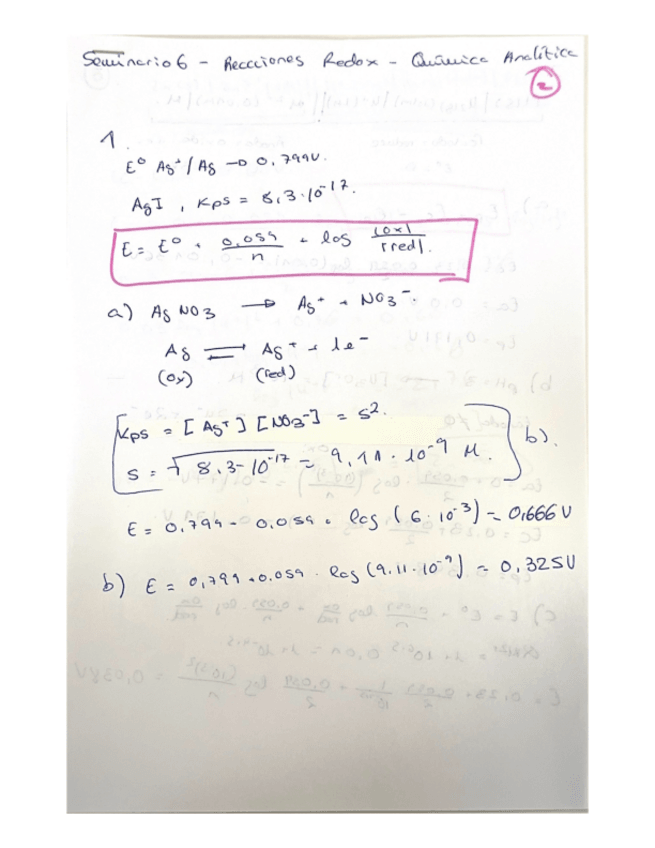 Seminario 6 - Reacciones Redox - Química Analítica
2
1.
E° Ag⁺/Ag → 0,799V.
AgI, Kps = 8,3·10⁻¹⁷.
E = E° + 0,059/n · log |ox|/|red|.
a) AgNO3 → Ag⁺ + NO3⁻
Ag ⇌ Ag⁺ + 1e⁻
(ox) (red)
Kps = [Ag⁺][NO3⁻] = s².
s = √8,3·10⁻¹⁷ = 9,11·10⁻⁹ M. b).
E = 0,799 - 0,059 · log (6·10⁻³) = 0,666V
b) E = 0,799 + 0,059 · log (9,11·10⁻⁹) = 0,325V